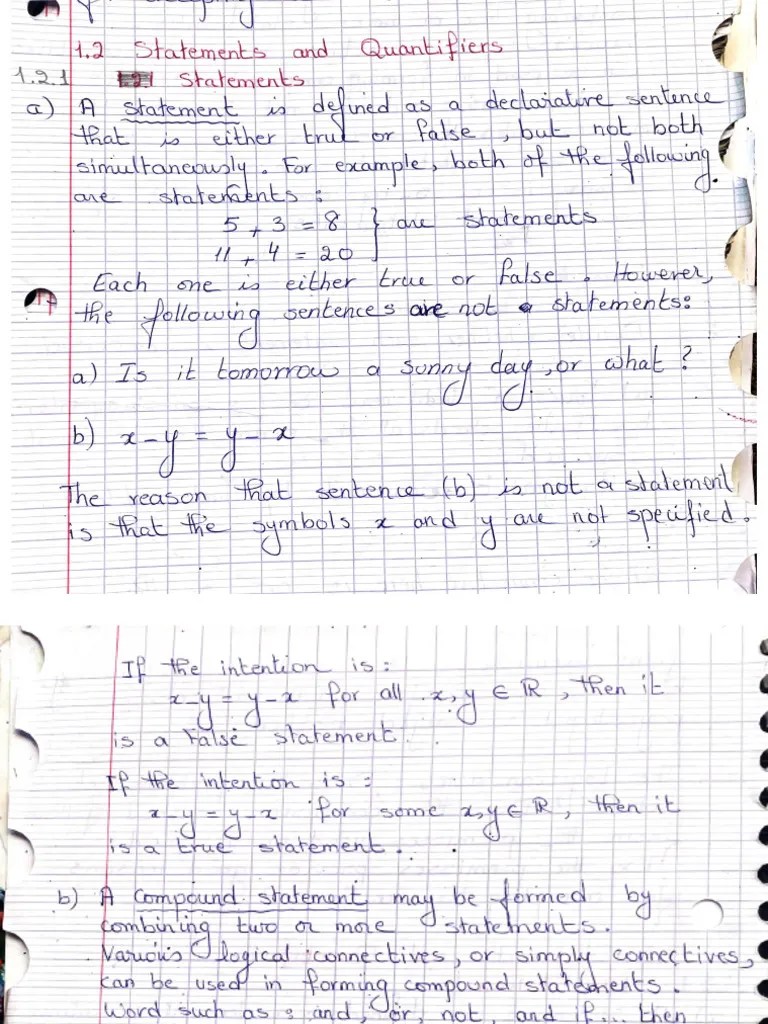 1.2 Statements and Quantifiers
1.2.1 Statements
a) A statement is defined as a declarative sentence
that is either true or false, but not both
simultaneously. For example, both of the following
are statements:
5 + 3 = 8 } are statements
11 + 4 = 20
Each one is either true or false. However,
the following sentences are not statements:
a) Is it tomorrow a sunny day, or what?
b) x - y = y - x
The reason that sentence (b) is not a statement
is that the symbols x and y are not specified.
If the intention is:
x - y = y - x for all x, y ∈ ℝ, then it
is a false statement.
If the intention is:
x - y = y - x for some x, y ∈ ℝ, then it
is a true statement.
b) A compound statement may be formed by
combining two or more statements.
Various logical connectives, or simply connectives,
can be used in forming compound statements.
Word such as: and, or, not, and if... then